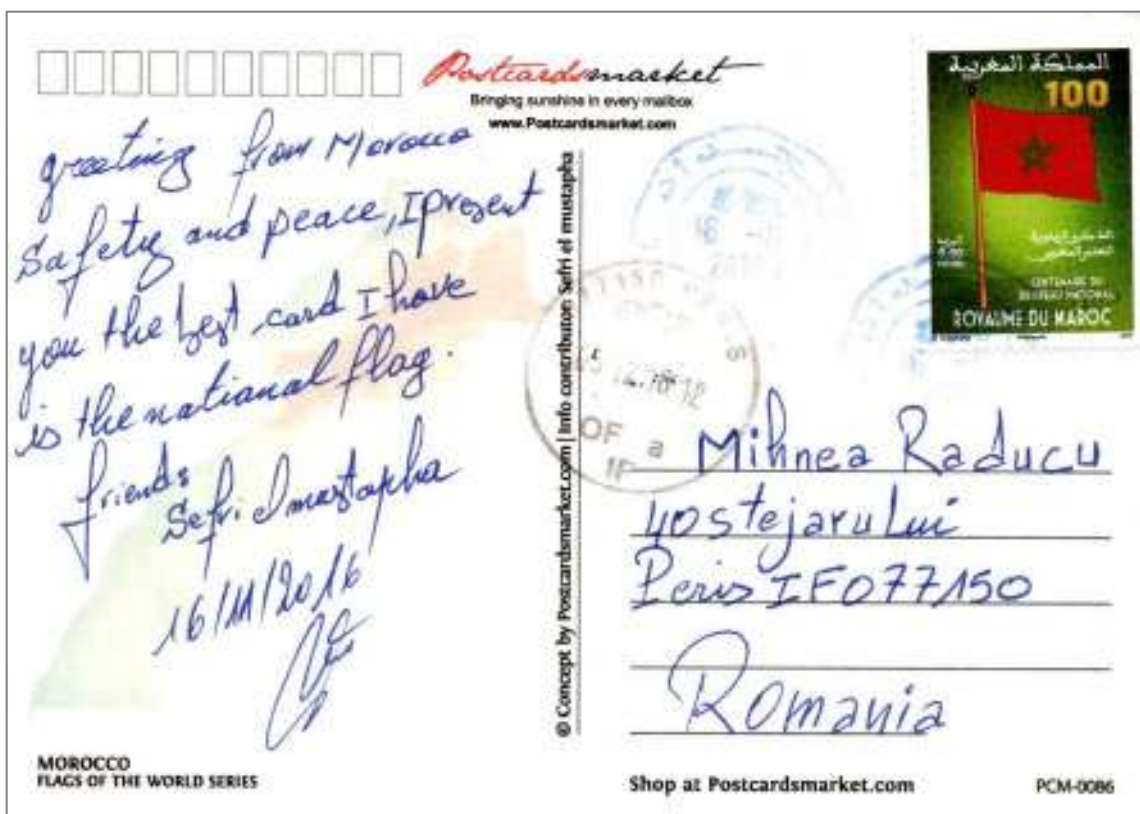 Postcardsmarket
Bringing sunshine in every mailbox
www.Postcardsmarket.com
greeting from Morocco
Safety and peace, I present
you the best card I have
is the national flag.
friends
Sefri elmustapha
16/11/2016
© Concept by Postcardsmarket.com | Info contributor: Sefri el mustapha
المملكة المغربية
100
CENTENAIRE DU
DRAPEAU NATIONAL
ROYAUME DU MAROC
OF a
IF
Mihnea Raducu
40 stejarului
Peris IF077150
Romania
MOROCCO
FLAGS OF THE WORLD SERIES
Shop at Postcardsmarket.com
PCM-0086